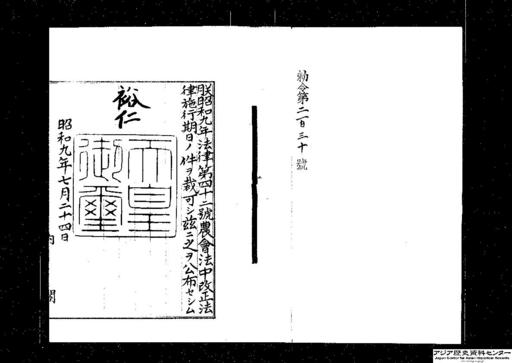 勅令第二百三十號
朕昭和九年法律第四十二號農會法中改正法
律施行期日ノ件ヲ裁可シ茲ニ之ヲ公布セシム
裕仁
天皇御璽
昭和九年七月二十四日
内閣
アジア歴史資料センター
Japan Center for Asian Historical Records